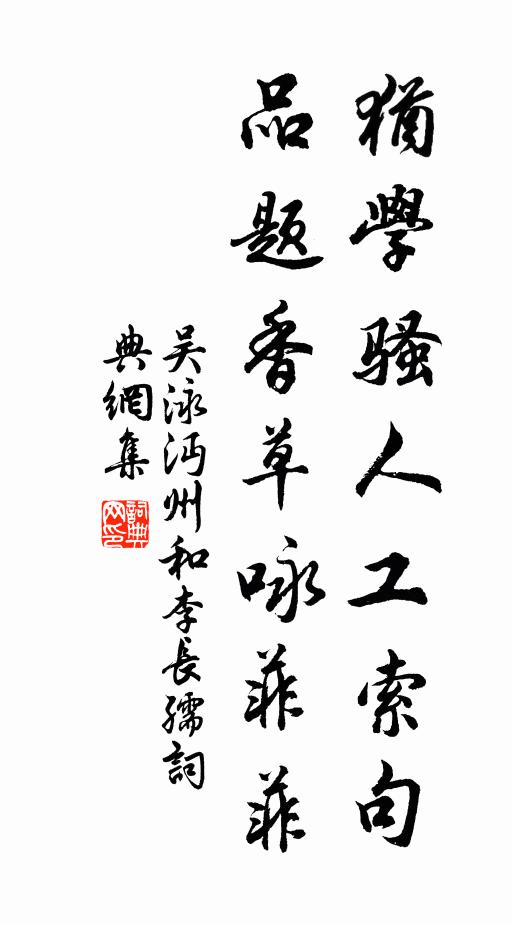 猶學騷人工索句
品題香草咏菲菲
吴泳沔州和李長孺詞
典網集
詞典网印